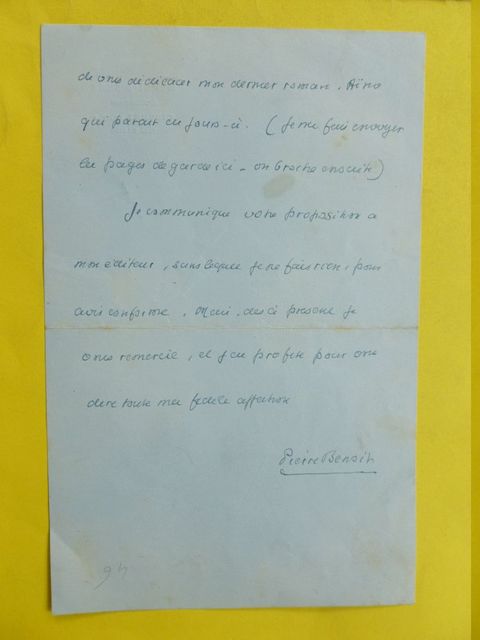 de vous dédicacer mon dernier roman, Aïno
qui parait ces jours-ci. (Je me fais envoyer
les pages de garde ici - on broche ensuite)
Je communique votre proposition à
mon éditeur, sans lequel je ne fais rien, pour
avis conforme. Mais, dès à présent je
vous remercie, et j'en profite pour vous
dire toute ma fidèle affection
Pierre Benoit
94